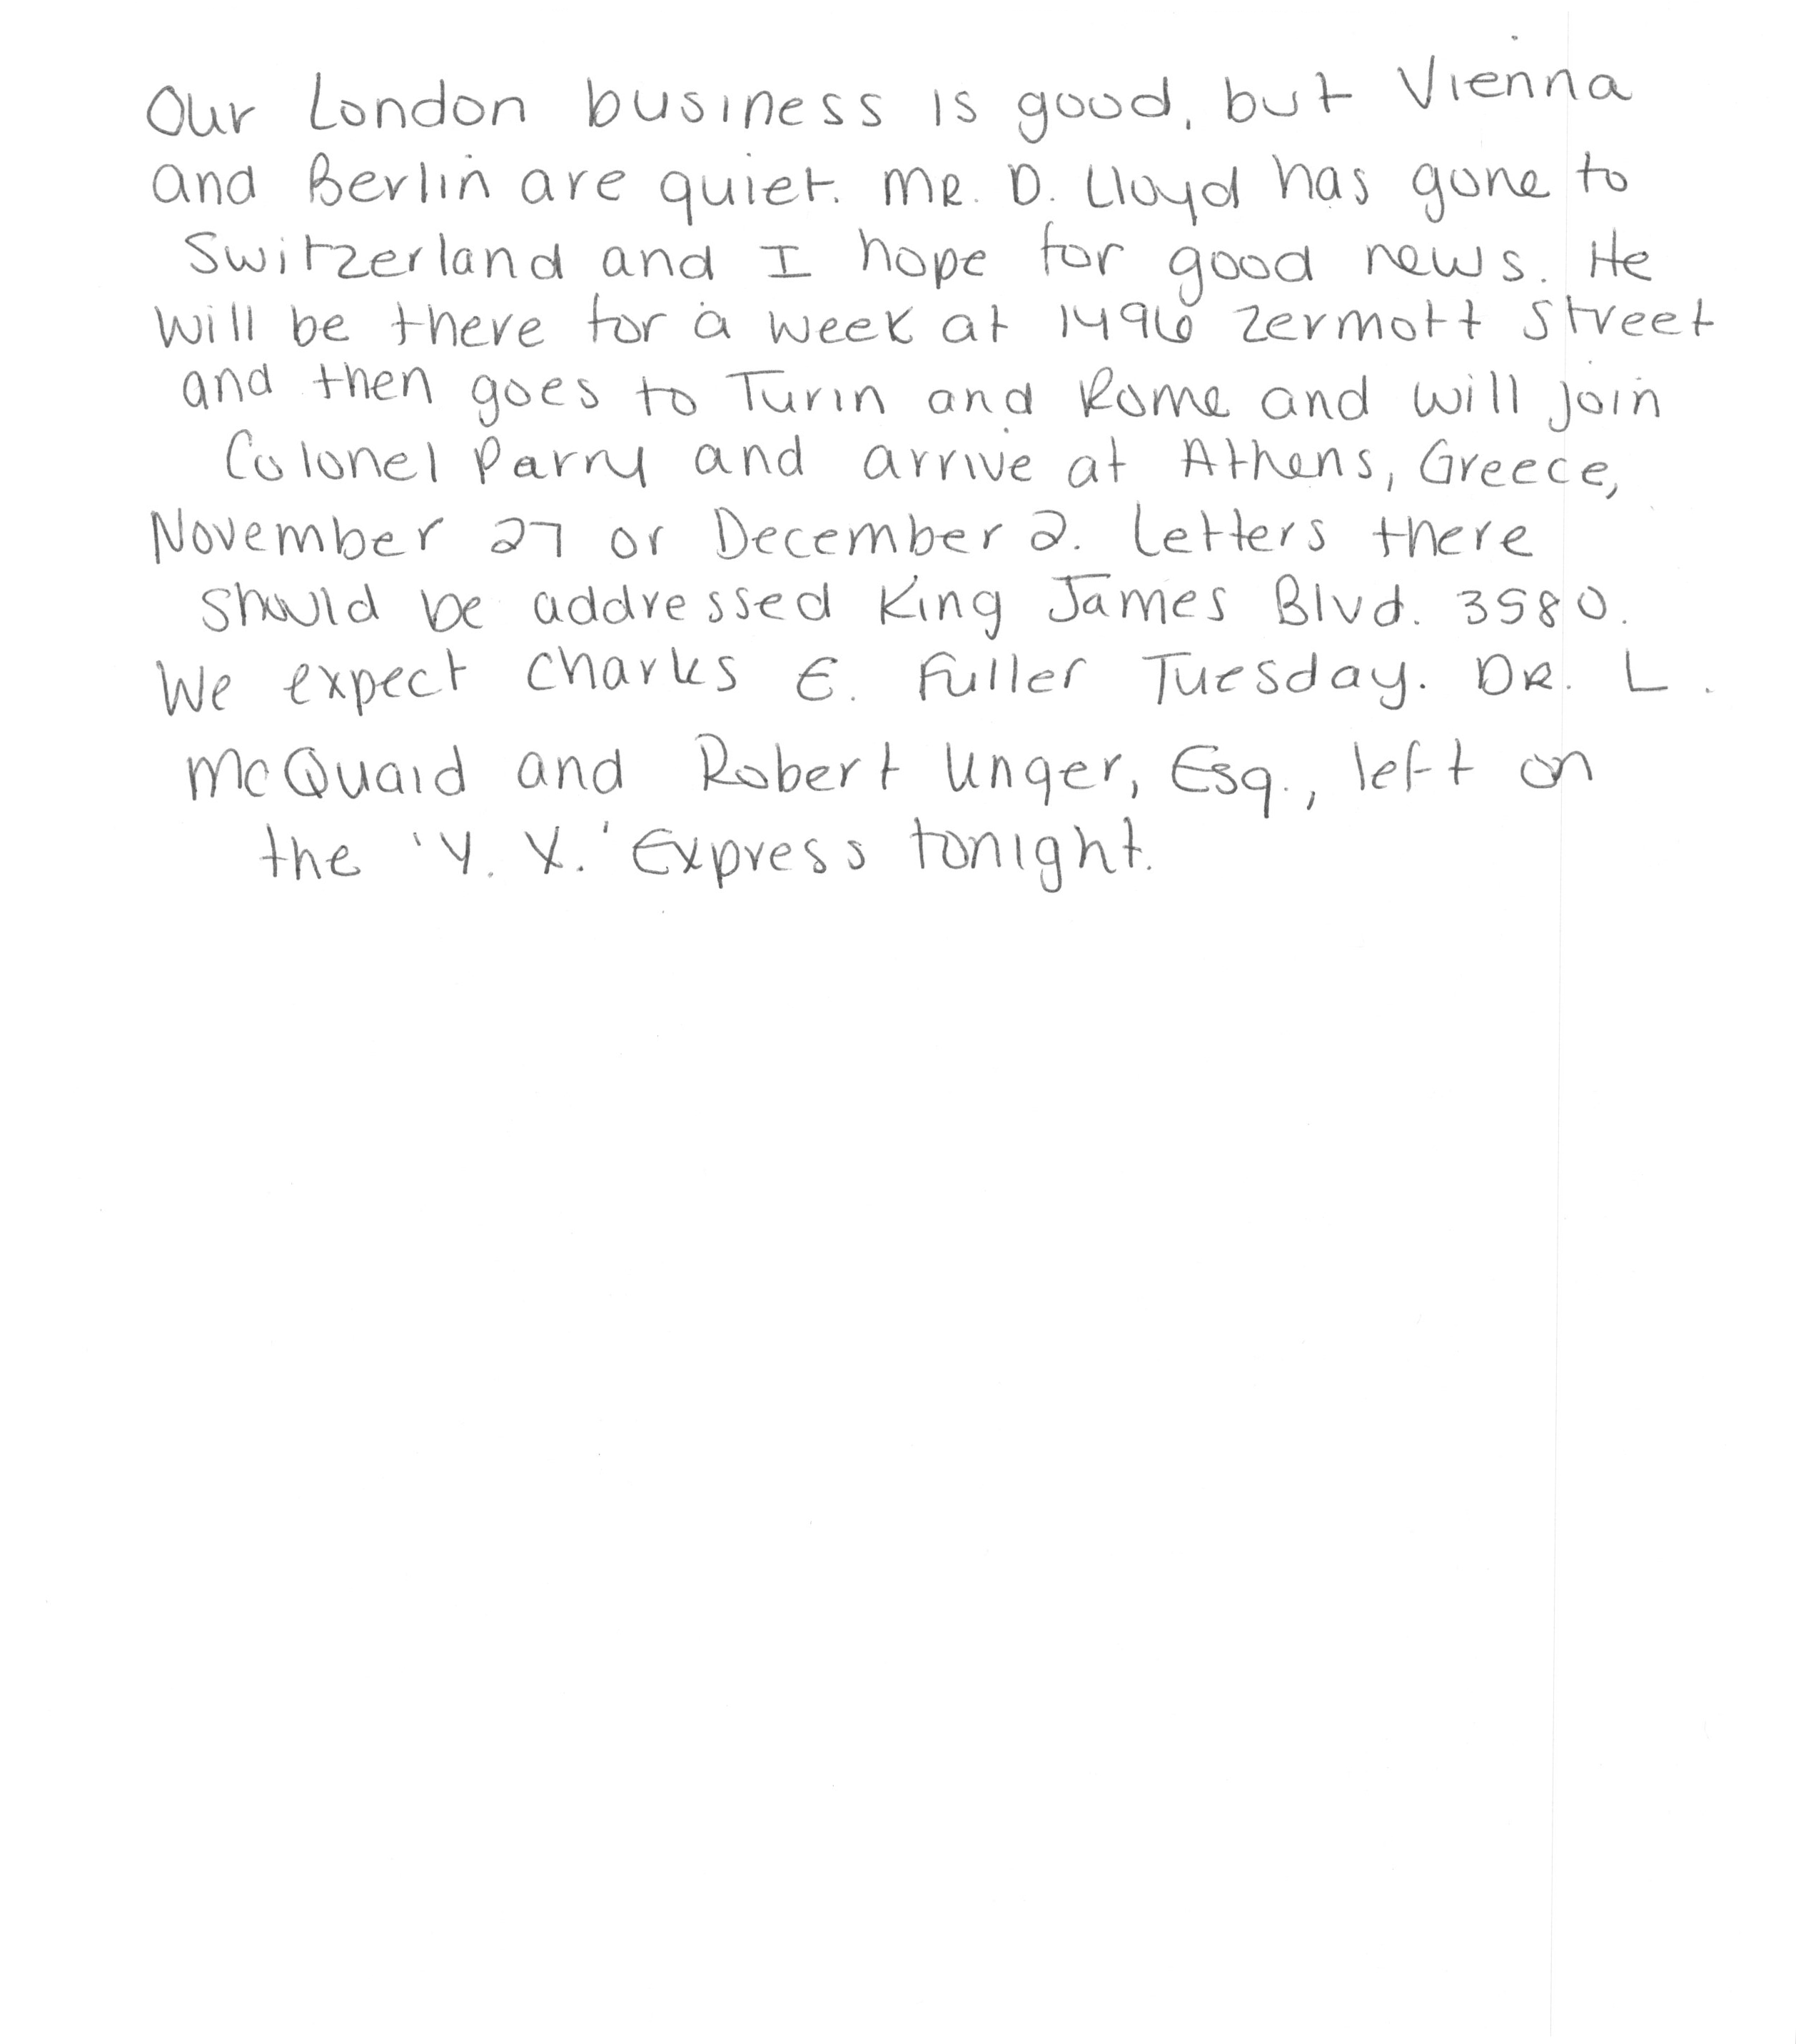 Our London business is good, but Vienna
and Berlin are quiet. MR. D. Lloyd has gone to
Switzerland and I hope for good news. He
will be there for a week at 1496 Zermott Street
and then goes to Turin and Rome and will join
Colonel Parry and arrive at Athens, Greece,
November 27 or December 2. Letters there
should be addressed King James Blvd. 3580.
We expect Charles E. Fuller Tuesday. DR. L.
McQuaid and Robert Unger, Esq., left on
the 'Y. X.' Express tonight.